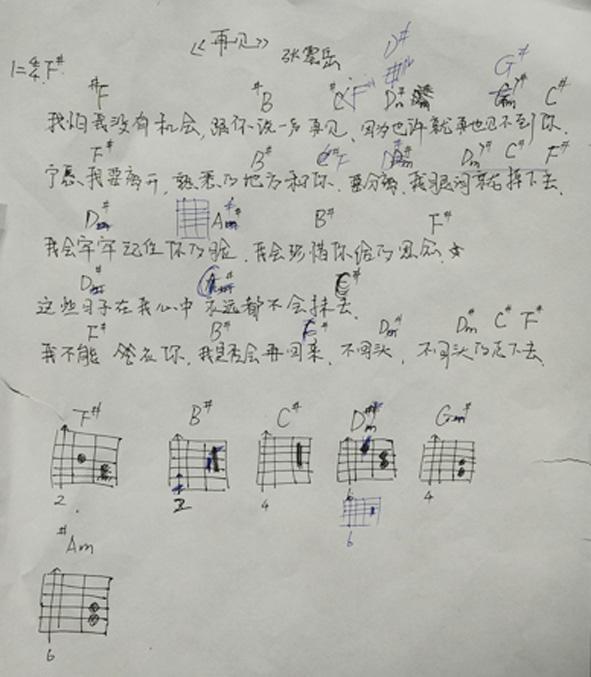 《再见》 张震岳
D# G#
1=4/4 F#
#F #B C# F Dm# Gm# C#
我怕我没有机会,跟你说一声再见,因为也许就再也见不到你.
F# B# C#F Dm# Dm# C# F#
要离开,熟悉的地方和你.要分离,我眼泪就掉下去.
Dm# Am# B# F#
我会牢牢记住你的脸,我会珍惜你给的思念,
Dm# Am# C#
这些日子在我心中永远都不会抹去.
F# B# F# Dm# Dm# C# F#
我不能答应你,我是否会再回来,不回头,不回头的走下去.
F# B# C# Dm# Gm#
2. 2 4 6 4
6
#Am
6